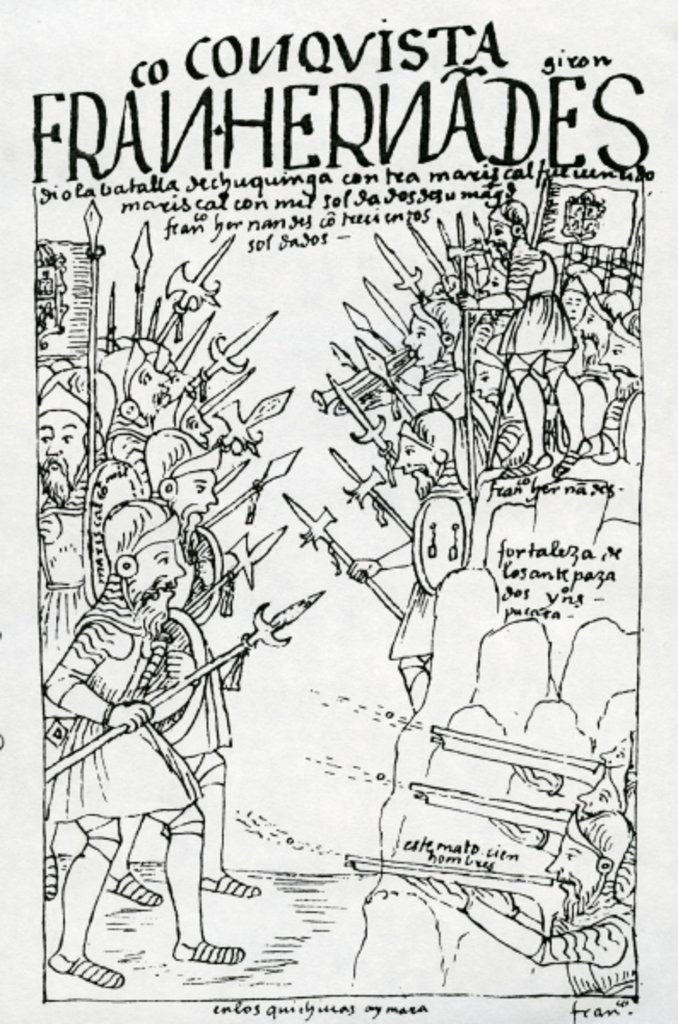 CO CONQVISTA
giron
FRAN·HERNÃDES
dio la batalla de chuquinga contra mariscal fue uencido
mariscal con mil soldados de su mag.d
fran.co hernandes cõ trecientos
soldados —
mariscal
fran.co hernãdes —
fortaleza de
los ante paza
dos yn.os —
pucara —
este mato cien
hombres
en los quichiuas aymara
fran.co